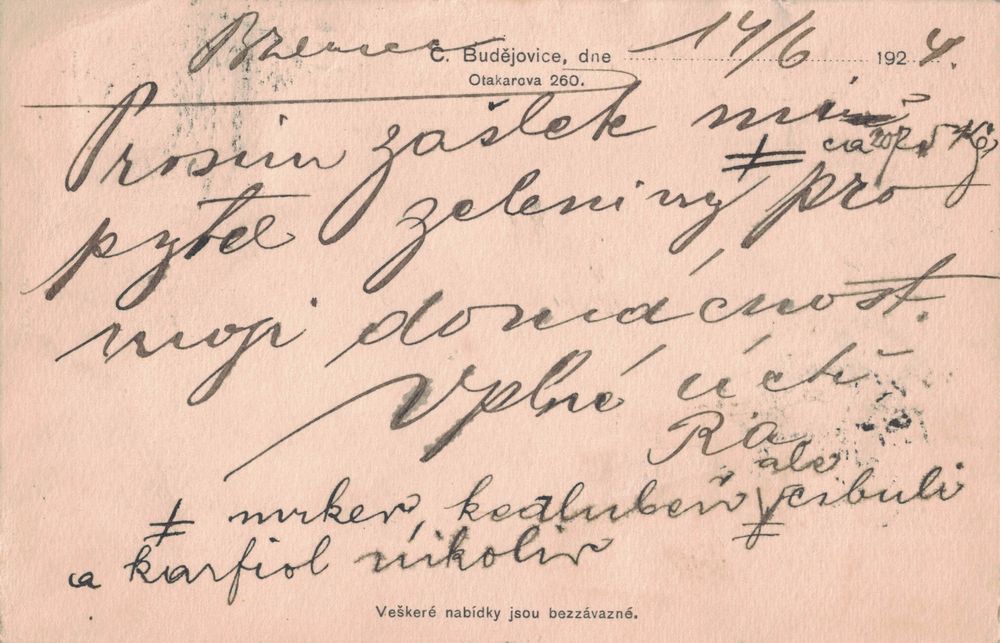 Č. Budějovice, dne 14/6 1924.
Otakarova 260.
Prosím zaslek mi
ca 20
pytel zeleniny ‡ pro
moji domácnost.
V plné úctě
Rá
ale
‡ mrkev, kedluben cibuli
a karfiol nikoliv
Veškeré nabídky jsou bezzávazné.